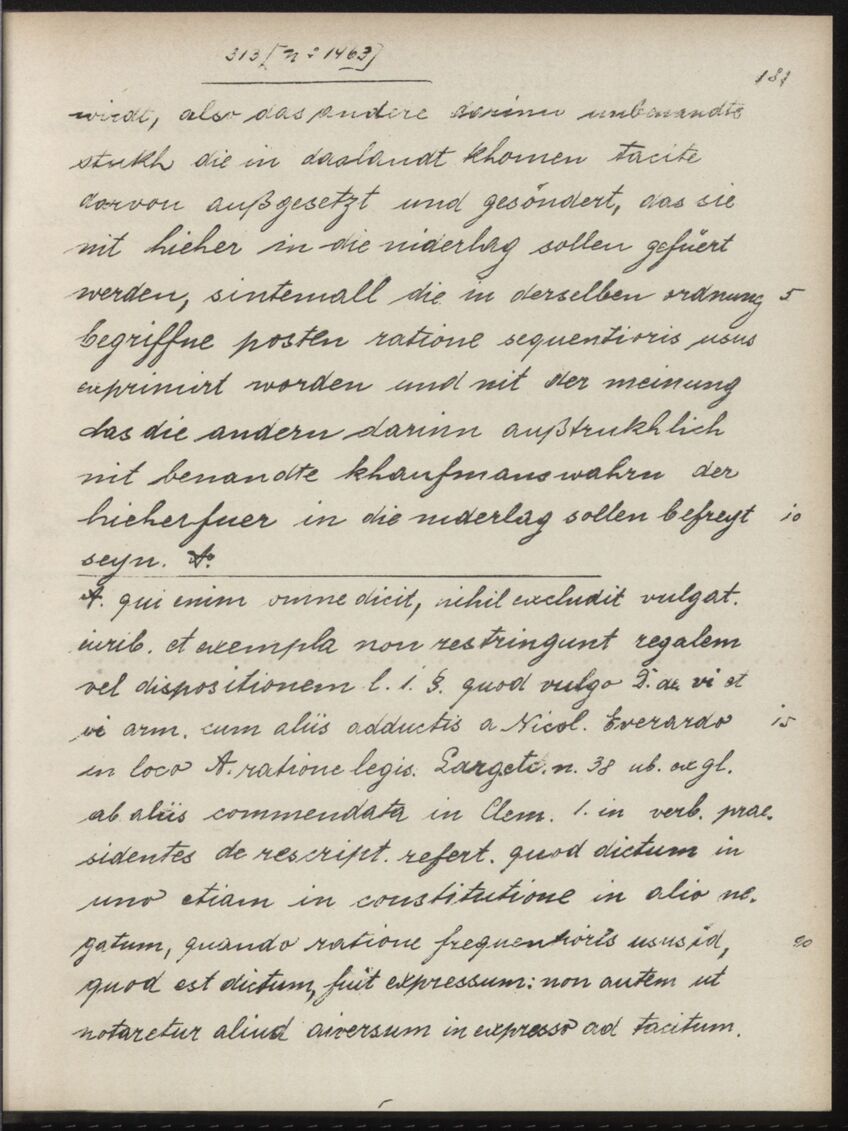 313 [nº 1463]
181
wirdt, also das andere darinn unbenandte
stukh die in daslandt khomen tacite
darvon außgesetzt und gesöndert, das sie
nit hieher in die niderlag sollen gefüert
werden, sintemall die in derselben ordnung 5
begriffne posten ratione sequentioris usus
exprimirt worden und nit der meinung
das die andern darinn außtrukhlich
nit benandte khaufmanswahrn der
hieherfuer in die niderlag sollen befreyt 10
seyn. A.
A. qui enim omne dicit, nihil excludit vulgat.
iurib. et exempla non restringunt regalem
vel dispositionem l. 1. §. quod vulgo D. de vi et
vi arm. cum aliis adductis a Nicol. Everardo 15
in loco A. ratione legis. Largetc. n. 38 ub. ex gl.
ab aliis commendata in Clem. 1. in verb. prae-
sidentes de rescript. refert. quod dictum in
uno etiam in constitutione in alio ne-
gatum, quando ratione frequentioris usus id, 20
quod est dictum, fuit expressum: non autem ut
notaretur aliud diversum in expresso ad tacitum.